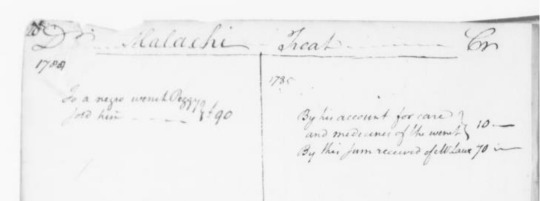 Dr Malachi Treat Cr
1784
To a negro wench Peggy
sold him £90
1785
By his account for care
and medecines of the wench 10 —
By this sum received of Mr Lane 70 —